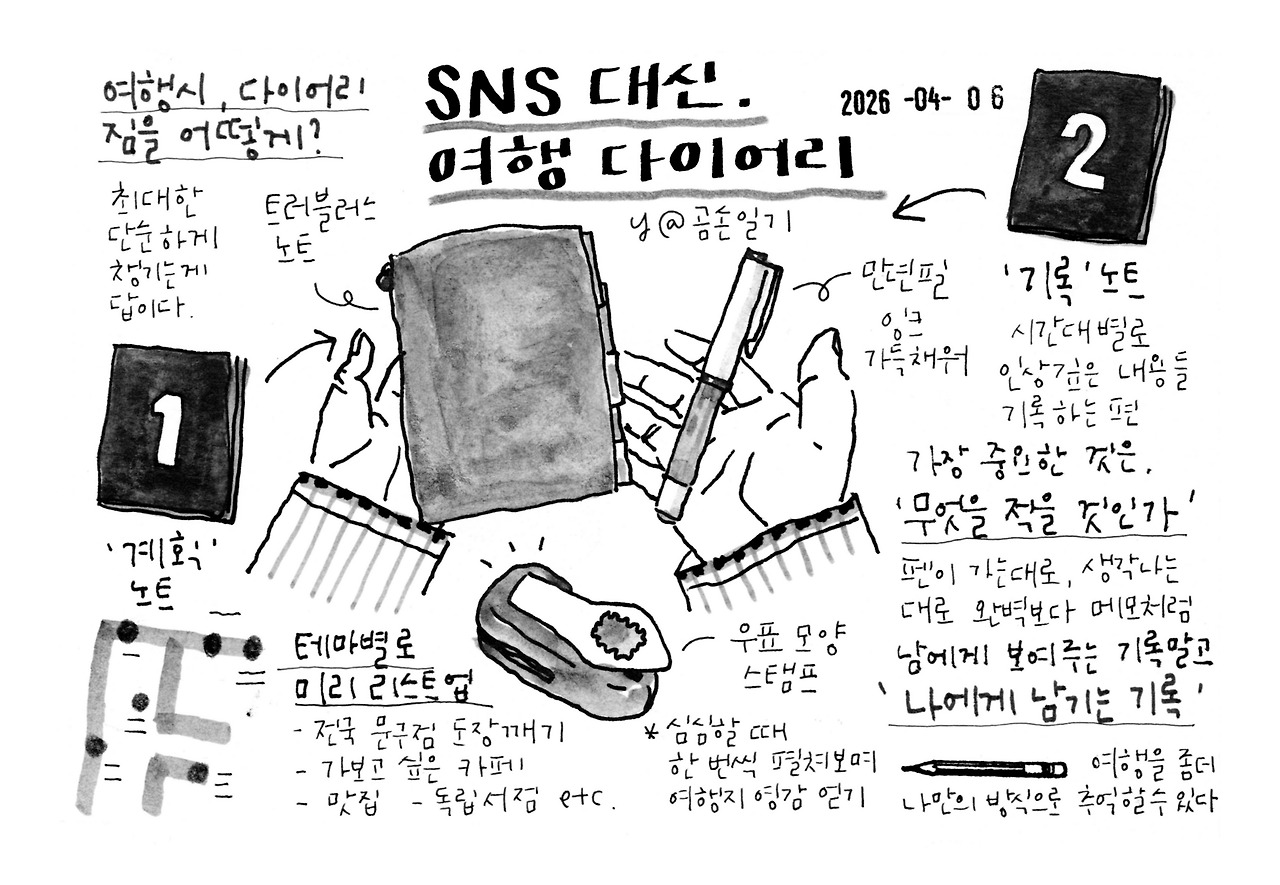 SNS 대신.
여행 다이어리
2026 -04- 06
by @곰손일기
여행시, 다이어리
짐을 어떻게?
최대한
단순하게
챙기는게
답이다.
트러블러스
노트
1
'계획'
노트
테마별로
미리 리스트업
- 전국 문구점 도장깨기
- 가보고 싶은 카페
- 맛집 - 독립서점 etc.
만년필
잉크
가득채워
우표 모양
스탬프
* 심심할 때
한 번씩 펼쳐보며
여행지 영감 얻기
2
'기록' 노트
시간대별로
인상깊은 내용들
기록하는 편
가장 중요한 것은,
'무엇을 적을 것인가'
펜이 가는대로, 생각나는
대로 완벽보다 메모처럼
남에게 보여주는 기록말고
'나에게 남기는 기록'
여행을 좀더
나만의 방식으로 추억할수 있다